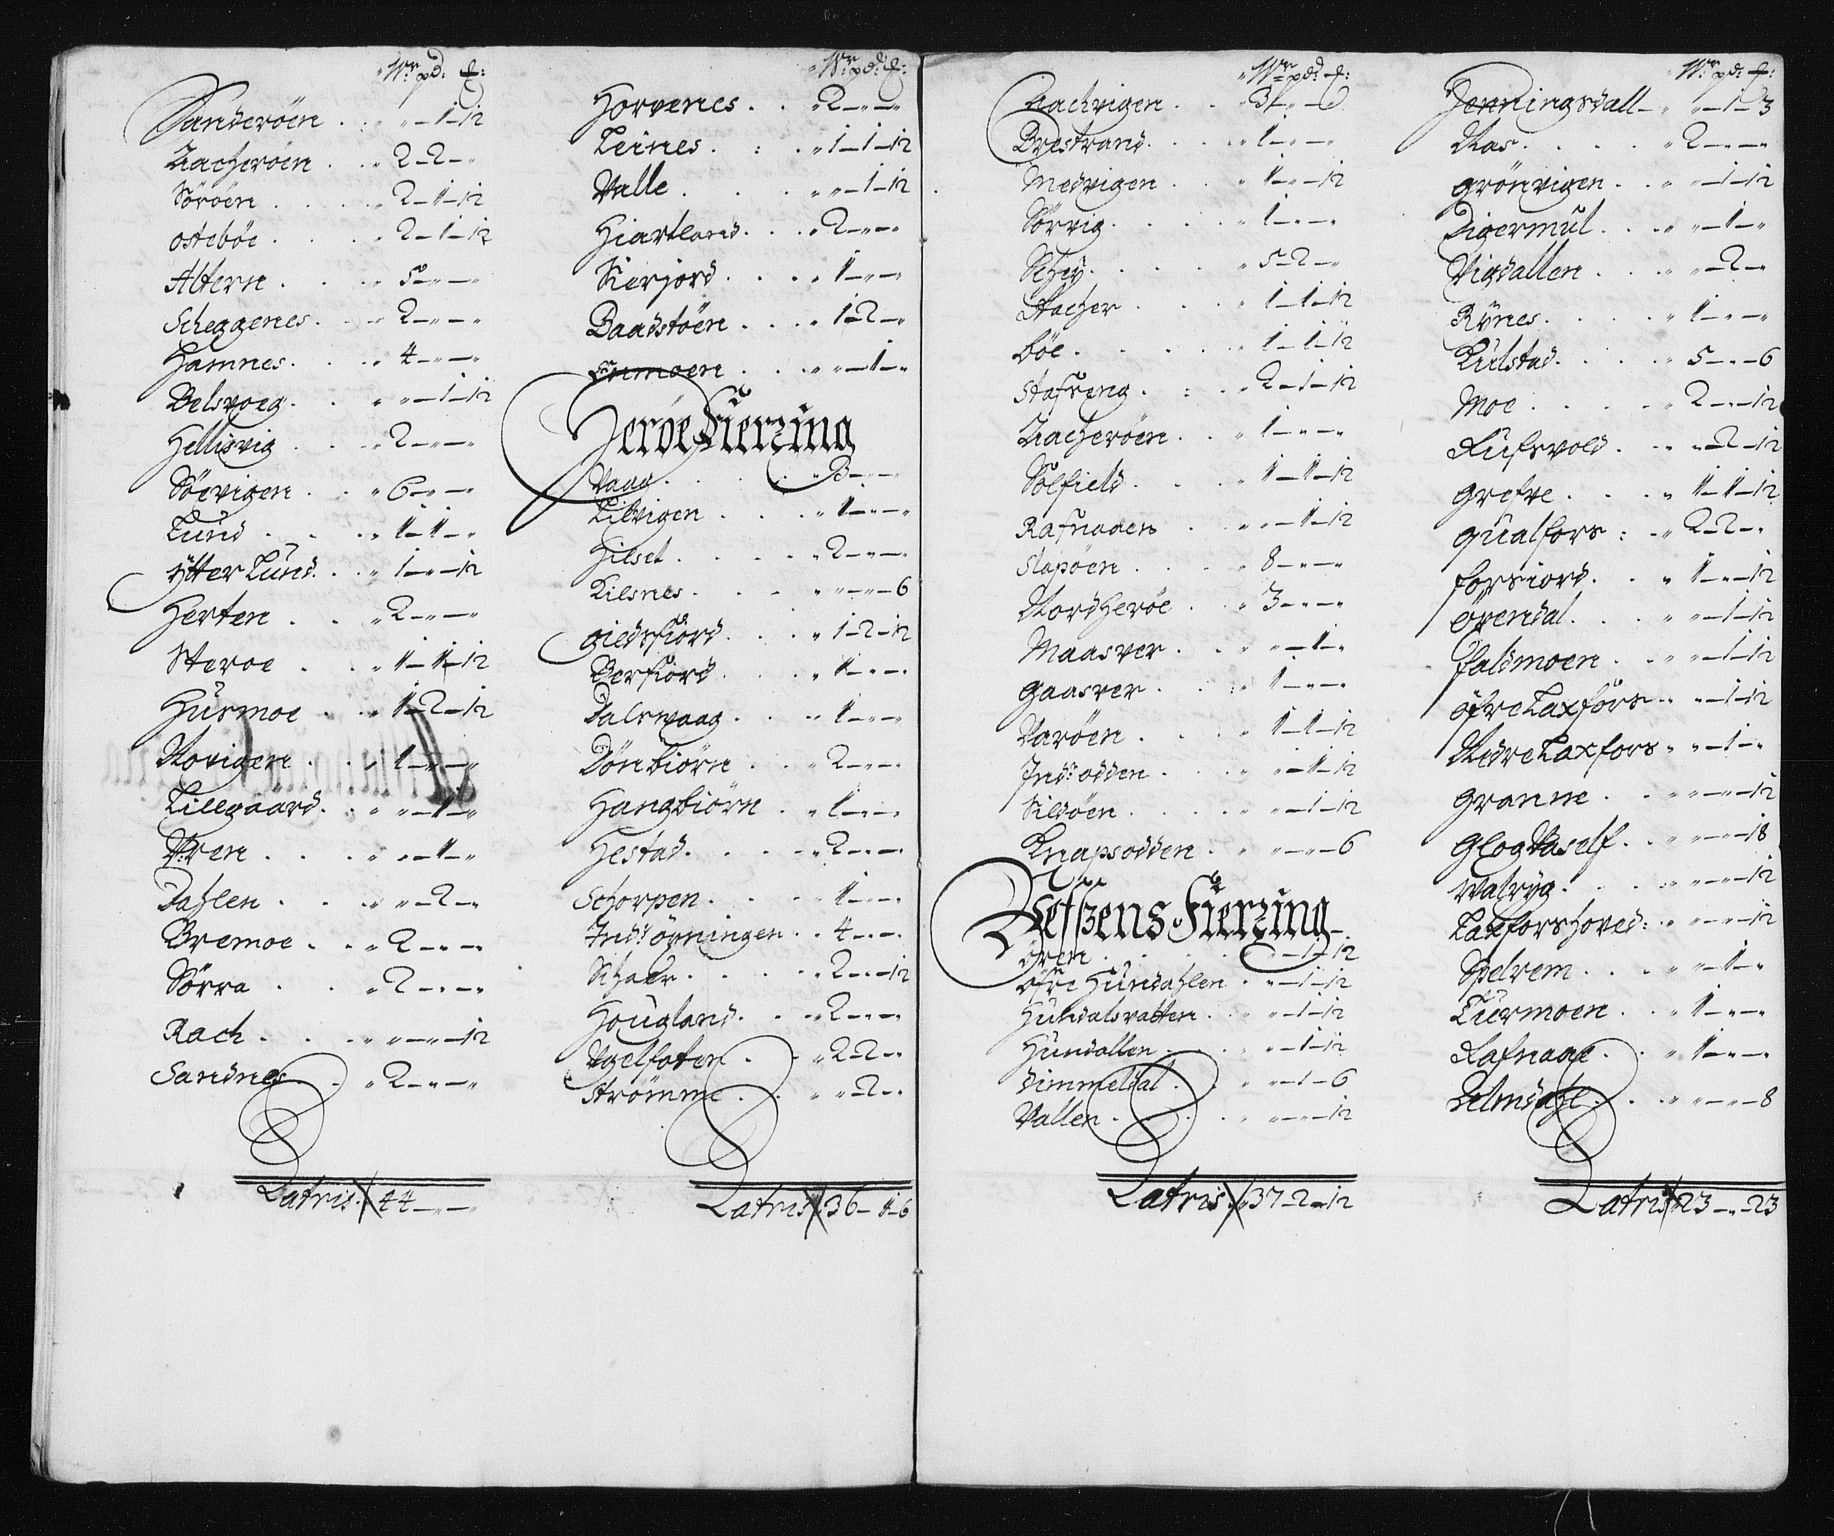 Wr pd: £:
Sanderöen . . „ „ — 1 — 12
Zacheröen . . „ 2 — 2 — „
Söröen . . . „ 2 — 1 — 12
osteböe . . . „ 2 — 1 — 12
Altern . . . „ 5 — „ — „
Scheggenes . . „ 2 — „ — „
Hamnes . . . „ 4 — „ — „
Belsvoeg . . „ „ — 1 — 12
Hellisvig . . „ 2 — „ — „
Söevigen . . „ 6 — „ — „
Lund . . . „ 1 — 1 — „
ÿtter Lund . . „ 1 — „ — 12
Herten . . „ 2 — „ — „
Steroe . . „ 1 — 1 — 12
Husmoe . . „ 1 — 2 — 12
Movigen . . „ 1 — „ — „
Lillegaard . . „ „ — 1 — „
Vren . . . „ „ — 1 — „
Dahlen . . „ „ — 2 — „
Bremoe . . „ 2 — „ — „
Sörra . . „ 2 — „ — „
Rach . . . „ „ — „ — 12
Sandnes . . „ 2 — „ — „
Latris . 44 — „ — „
Wr pd: £:
Horvenes . . „ 2 — „ — „
Leines . : . „ 1 — 1 — 12
Valle . . . „ „ — 1 — 12
Hiartland . . „ 2 — „ — „
Sierjord . . „ 1 — „ — „
Baadstöen . . „ 1 — 2 — „
Enmoen . . „ „ — 1 — „
Jeröe Fierzing
Vaag . . . „ 3 — „ — „
Lilvigen . . „ 1 — „ — „
Hilset . . . „ 2 — „ — „
Lilsnes . . . „ „ — „ — 6
gieldsfiord . . „ 1 — 2 — 12
Berfiord . . „ 1 — „ — „
Dalswaag . . „ 1 — „ — „
Dönbiörn . . „ 2 — „ — „
Hangbiörn . . „ 1 — „ — „
Hestad . . . „ 2 — „ — „
Schorpen . . „ 1 — „ — „
Indr öÿningen . „ 4 — „ — „
Schaer . . . „ 2 — „ — 12
Hougland . . „ 2 — „ — „
Vgelfoten . . „ 2 — 2 — „
Strömme . . „ „ — 2 — „
Latris . 36 — 1 — 6
Wr pd: £:
Rachvigen . . „ 3 — „ — 6
Brestrand . . „ 1 — „ — „
Medvigen . . „ 1 — „ — 12
Sörvig . . . „ 1 — „ — „
Schey . . . „ 5 — 2 — „
Stacher . . „ 1 — 1 — 12
böe . . . „ 1 — 1 — 12
Stafseng . : „ 2 — 1 — 12
Zacheröen . . „ 1 — „ — „
Solfield . . „ 1 — 1 — 12
Rafnaaen . „ „ — 1 — 12
Slapöen . . „ 8 — „ — „
Nordheröe . „ 3 — „ — „
Maasver . . „ „ — 1 — „
gaasver . . „ 1 — „ — „
Varöen . . „ 1 — 1 — 12
Indr odden . . „ „ — 1 — 12
Sildöen . . . „ „ — 1 — 12
Knapsodden . „ „ — „ — 6
Vefsens Fierzing
ören . . . „ „ — 1 — 12
öfre Hundahlen . „ „ — 1 — 12
Hundalsvatten . „ „ — 1 — 12
Hundallen . . „ „ — 1 — 12
Dimmeldal . . „ „ — 1 — 6
Vallen . . . „ „ — „ — 12
Latris . 37 — 2 — 12
Wr pd: £:
Jenningsdall . „ „ — 1 — 3
Mas . . . „ 2 — „ — „
grönvigen . . „ „ — 1 — 12
Digermul . . „ „ — 1 — „
Vigdallen . . „ „ — 2 — „
Rÿnes . . . „ 1 — „ — „
Kulstad . . . „ 5 — „ — 6
Moe . . . „ 2 — „ — 12
Kufsvold . . „ „ — 2 — 12
grefve . . . „ 1 — 1 — 12
qualfors : . „ 2 — 2 — „
forsiord . . „ 1 — „ — 12
öÿendal . . . „ „ — 1 — 12
faldmoen . . „ „ — 1 — 12
öfre Laxfors . „ „ — 1 — 12
Nedre Laxfors . „ „ — 1 — „
granne . . „ „ — „ — 12
glog Vaself . . „ „ — „ — 18
Valryg . . . „ „ — „ — 12
Laxforshoved : . „ „ — „ — 12
Spelrem . . . „ „ — 1 — „
Tuermoen . . „ 1 — „ — „
Rafnaae . . „ 1 — „ — „
Helmdahl . . „ „ — „ — 8
Latris . 23 — „ — 23